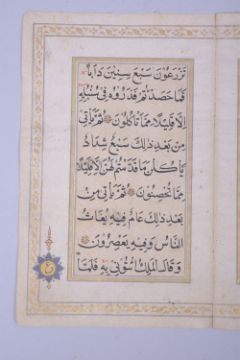 تَزْرَعُونَ سَبْعَ سِنِينَ دَأَبًا
فَمَا حَصَدْتُمْ فَذَرُوهُ فِي سُنْبُلِهِ
إِلَّا قَلِيلًا مِمَّا تَأْكُلُونَ ثُمَّ يَأْتِي
مِنْ بَعْدِ ذَلِكَ سَبْعٌ شِدَادٌ
يَأْكُلْنَ مَا قَدَّمْتُمْ لَهُنَّ إِلَّا قَلِيلًا
مِمَّا تُحْصِنُونَ ثُمَّ يَأْتِي مِنْ
بَعْدِ ذَلِكَ عَامٌ فِيهِ يُغَاثُ
النَّاسُ وَفِيهِ يَعْصِرُونَ
وَقَالَ الْمَلِكُ ائْتُونِي بِهِ فَلَمَّا